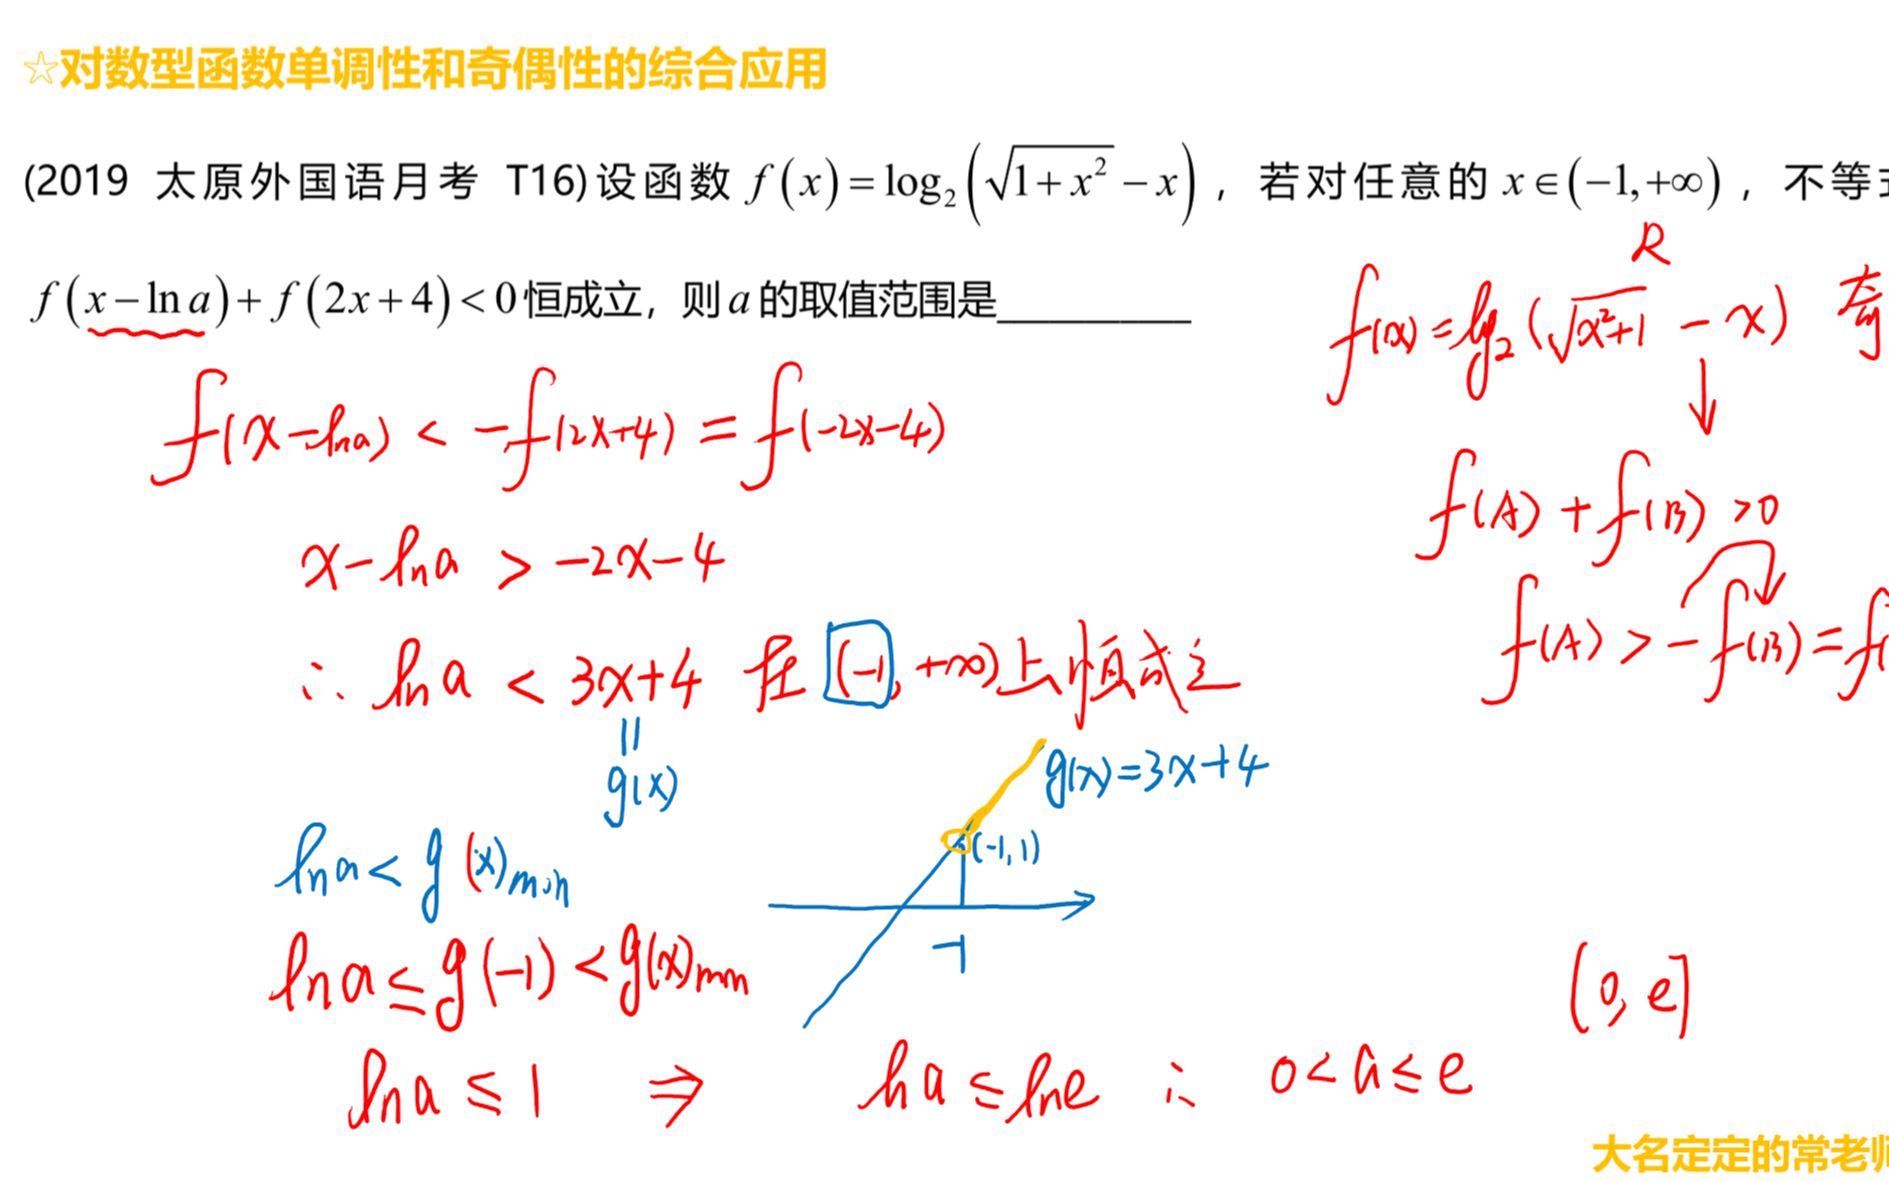 ☆对数型函数单调性和奇偶性的综合应用
(2019 太原外国语月考 T16)设函数 f(x)=log₂(√(1+x²)−x)，若对任意的 x∈(−1,+∞)，不等
f(x−ln a)+f(2x+4)<0恒成立，则a的取值范围是________
R
f(x)=log₂(√(x²+1) −x) 奇
f(x−ln a) < −f(2x+4) = f(−2x−4)
f(A)+f(B)>0
x−ln a > −2x−4
f(A)>−f(B)=f(
∴ ln a < 3x+4 在(−1,+∞)上恒成立
=
g(x)
g(x)=3x+4
(−1,1)
ln a< g(x)min
−1
ln a≤g(−1)<g(x)min
(0,e]
ln a≤1 ⇒ ln a≤ln e ∴ 0<a≤e
大名定定的常老师